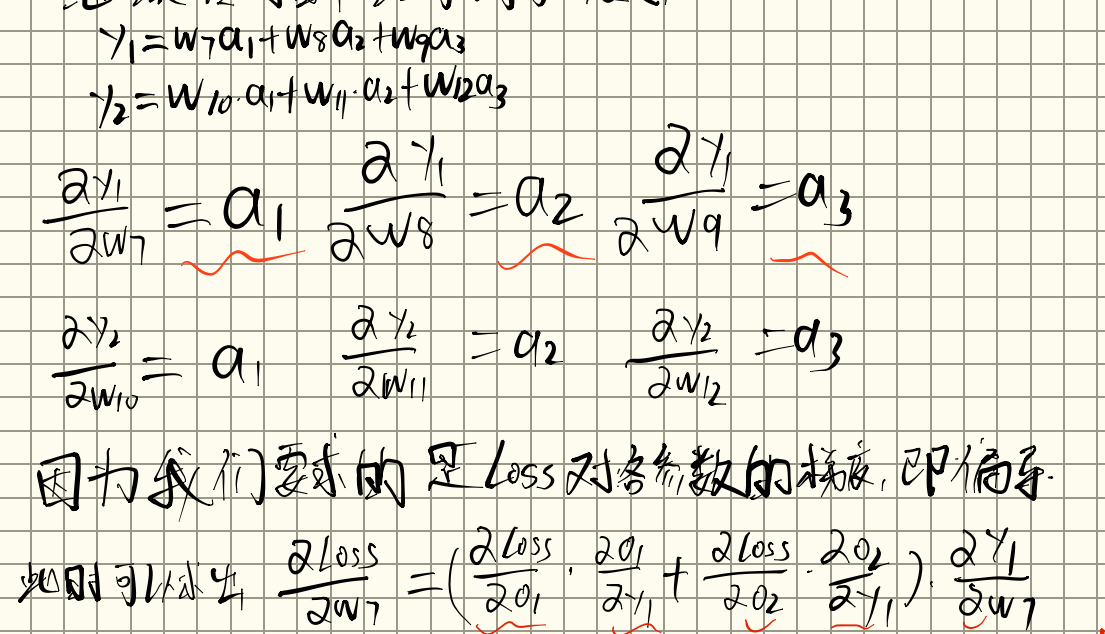 y₁=w₇a₁+w₈a₂+w₉a₃
y₂=w₁₀·a₁+w₁₁·a₂+w₁₂a₃
∂y₁/∂w₇ = a₁ ∂y₁/∂w₈ = a₂ ∂y₁/∂w₉ = a₃
∂y₂/∂w₁₀ = a₁ ∂y₂/∂w₁₁ = a₂ ∂y₂/∂w₁₂ = a₃
因为我们要求的是Loss对各参数的梯度,即偏导.
此时可以求出 ∂Loss/∂w₇ = (∂Loss/∂o₁ · ∂o₁/∂y₁ + ∂Loss/∂o₂ · ∂o₂/∂y₁) · ∂y₁/∂w₇